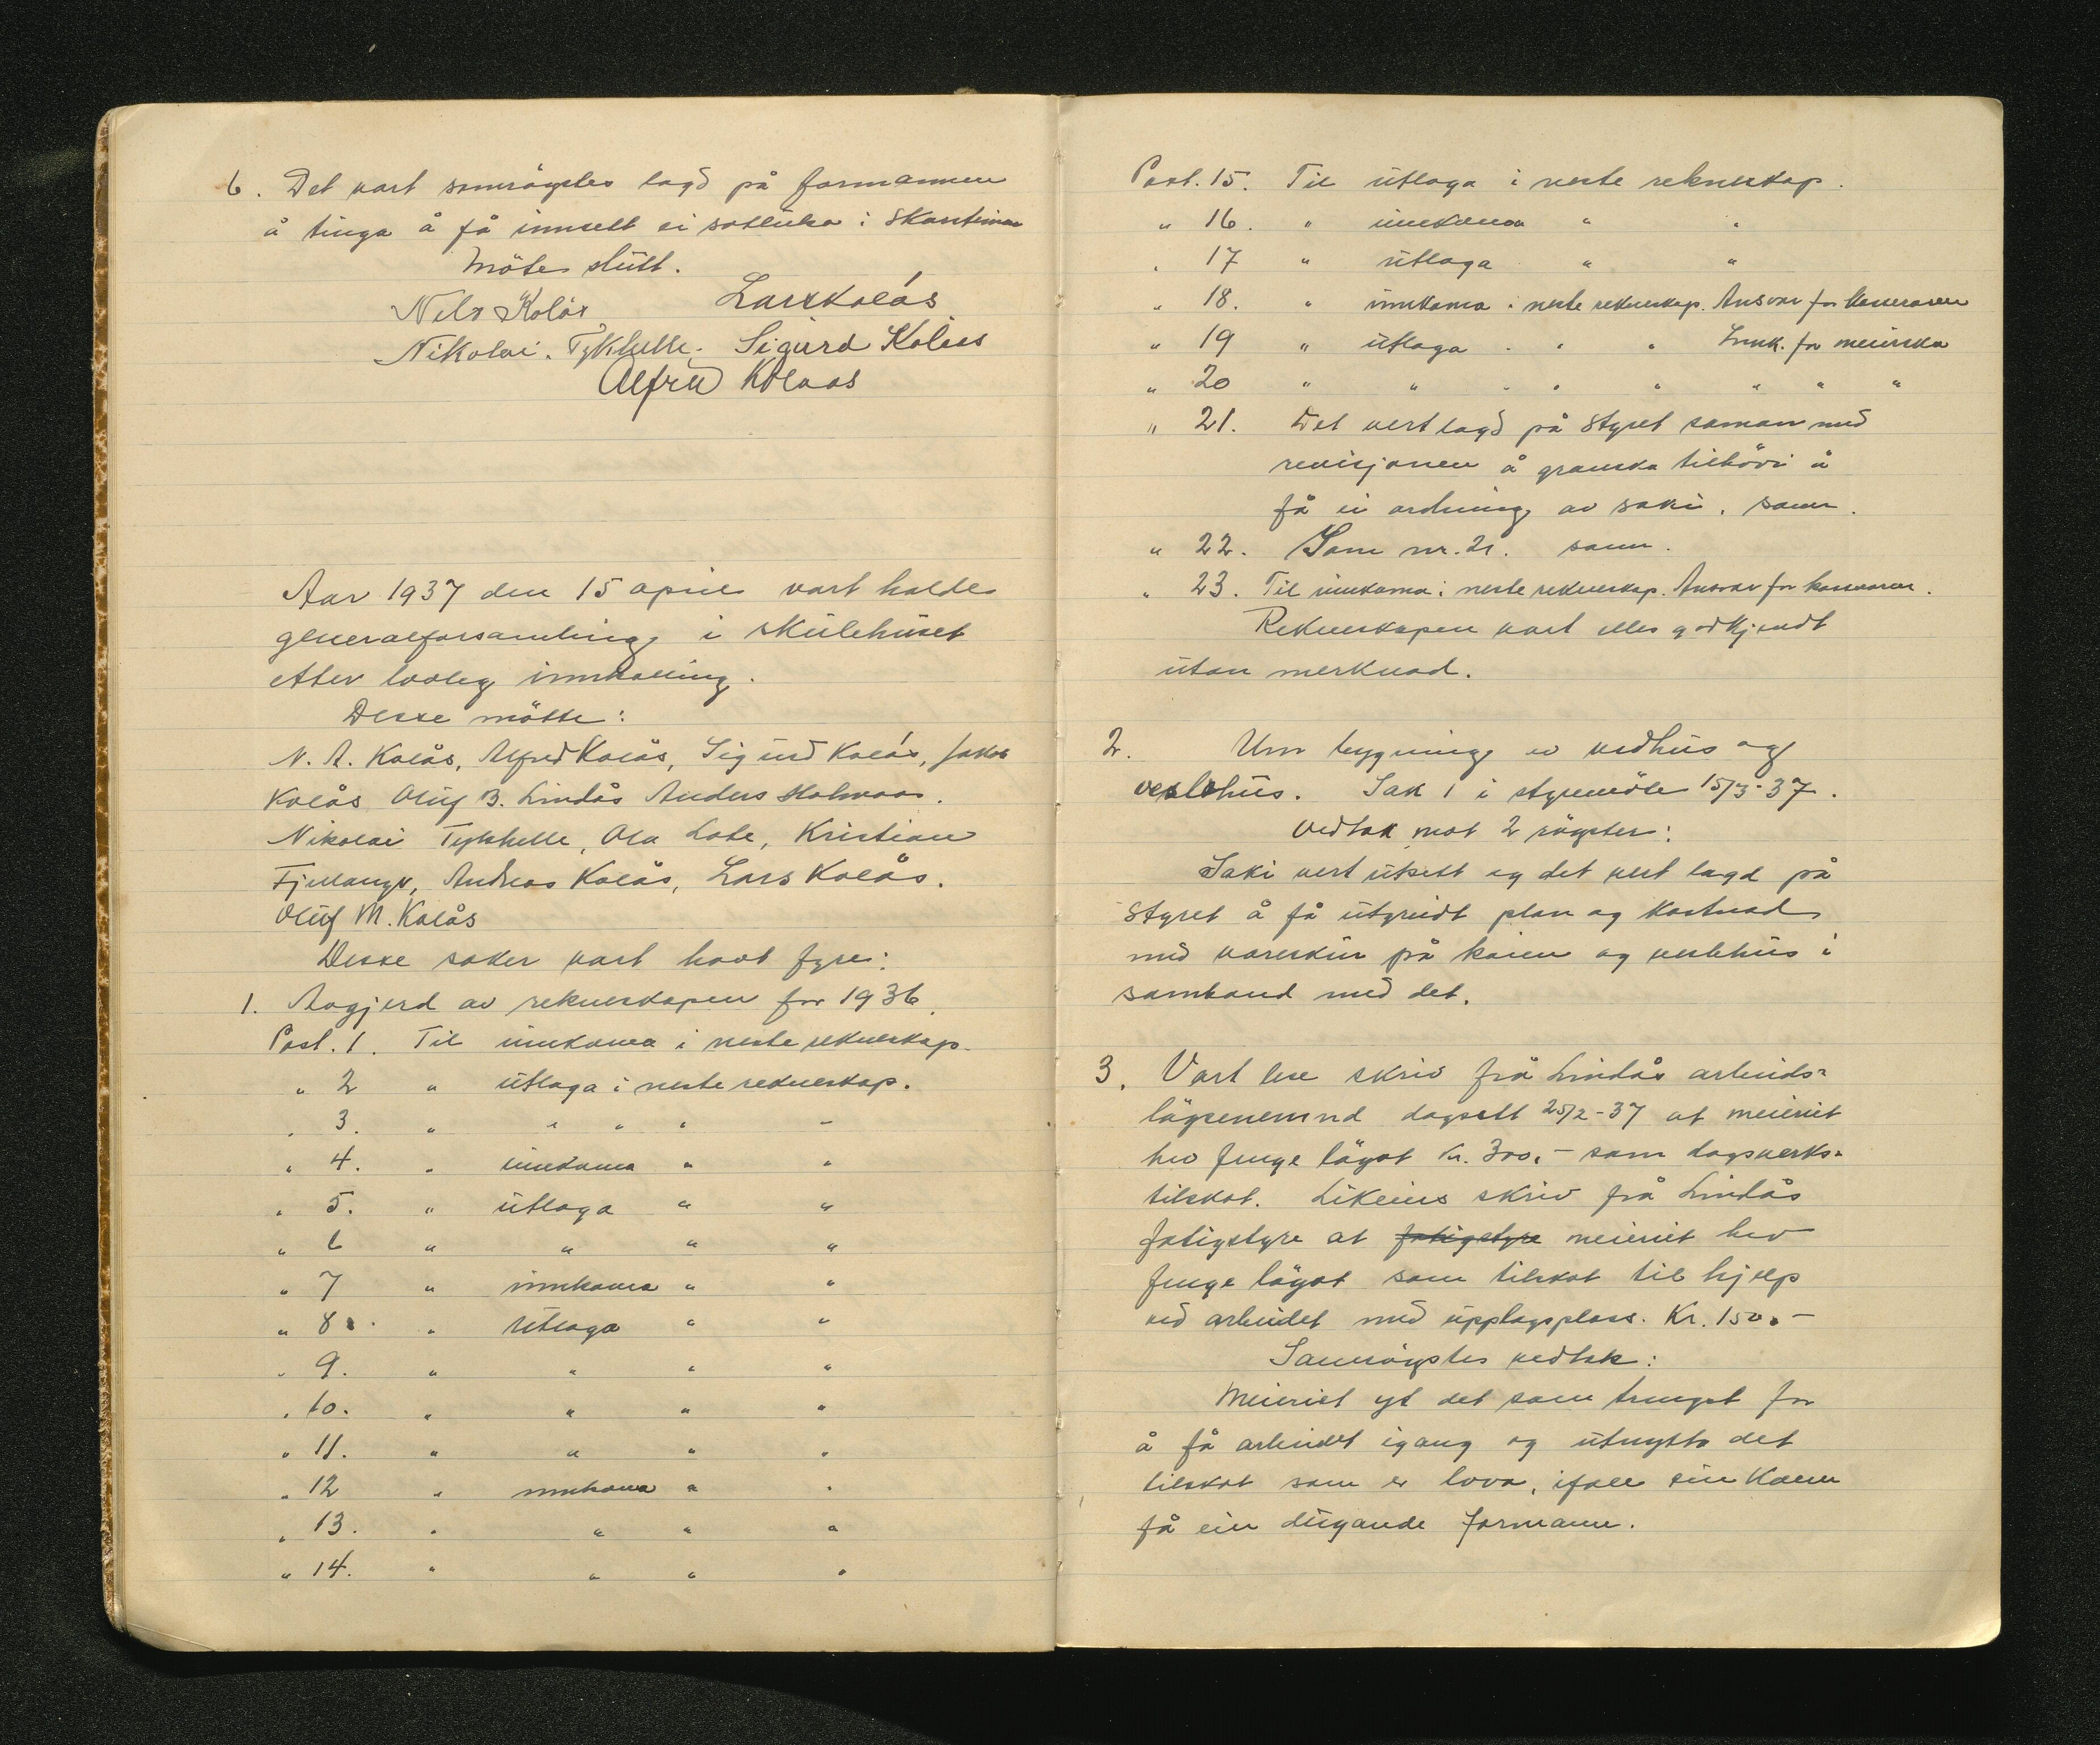 6. Det vart samrøystes lagd på formannen
å tinga å få innsett ei sotluka i Skorsteinen
Møte slutt.
Nils Kolås Lars Kolås
Nikolai. Tykhelle. Sigurd Kolås
Alfred Kolaas
Aar 1937 den 15 april vart halde
generalforsamling i skulehuset
etter lovleg innkalling.
Desse møtte:
N. A. Kolås, Alfred Kolås, Sigurd Kolås, Jakob
Kolås Oluf B. Lindås Anders Holmaas.
Nikolai Tykhelle, Ola Lote, Kristian
Fjellanger, Andreas Kolås, Lars Kolås.
Oluf M. Kolås
Desse saker vart havt fyre:
1. Avgjerd av rekneskapen for 1936.
Post. 1. Til innkoma i neste rekneskap.
" 2 " utlaga i neste rekneskap.
" 3. " " " " "
" 4. " innkoma " "
" 5. " utlaga " "
" 6 " " " "
" 7 " innkoma " "
" 8. " utlaga " "
" 9. " " " "
" 10. " " " "
" 11. " " " "
" 12 " innkoma " "
" 13. " " " "
" 14. " " " "
Post. 15. Til utlaga i neste rekneskap.
" 16. " innkoma " "
" 17 " utlaga " "
" 18. " innkoma i neste rekneskap. Ansvar for kasseraren
" 19 " utlaga " " " Innk. for meierska
" 20 " " " " " " " "
" 21. Det vert lagd på styret saman med
revisjonen å granska tilhøvi å
få ei ordning av saki. samr.
" 22. Som nr. 21. samr.
" 23. Til innkoma i neste rekneskap. Ansvar for kasseraren.
Rekneskapen vart elles godkjendt
utan merknad.
2. Um bygning av vedhus og
veslehus. Sak 1 i styremøte 15/3-37.
Vedtak mot 2 røyster:
Saki vert utsett og det vert lagd på
styret å få utgreidt plan og kostnad
med vareskur på kaien og veslehus i
samband med det.
3. Vart lese skriv frå Lindås arbeids-
løysenemnd dagsett 25/2-37 at meieriet
hev fenge løyvt kr. 300,- som dagsverks-
tilskot. Likeins skriv frå Lindås
fatigstyre at fatigstyre meieriet hev
fenge løyvt som tilskot til hjelp
ved arbeidet med upplagsplass. Kr. 150.-
Samrøystes vedtak:
Meieriet yt det som trengst for
å få arbeidet igang og utnytta det
tilskot som er lova, ifall ein kann
få ein dugande formann.